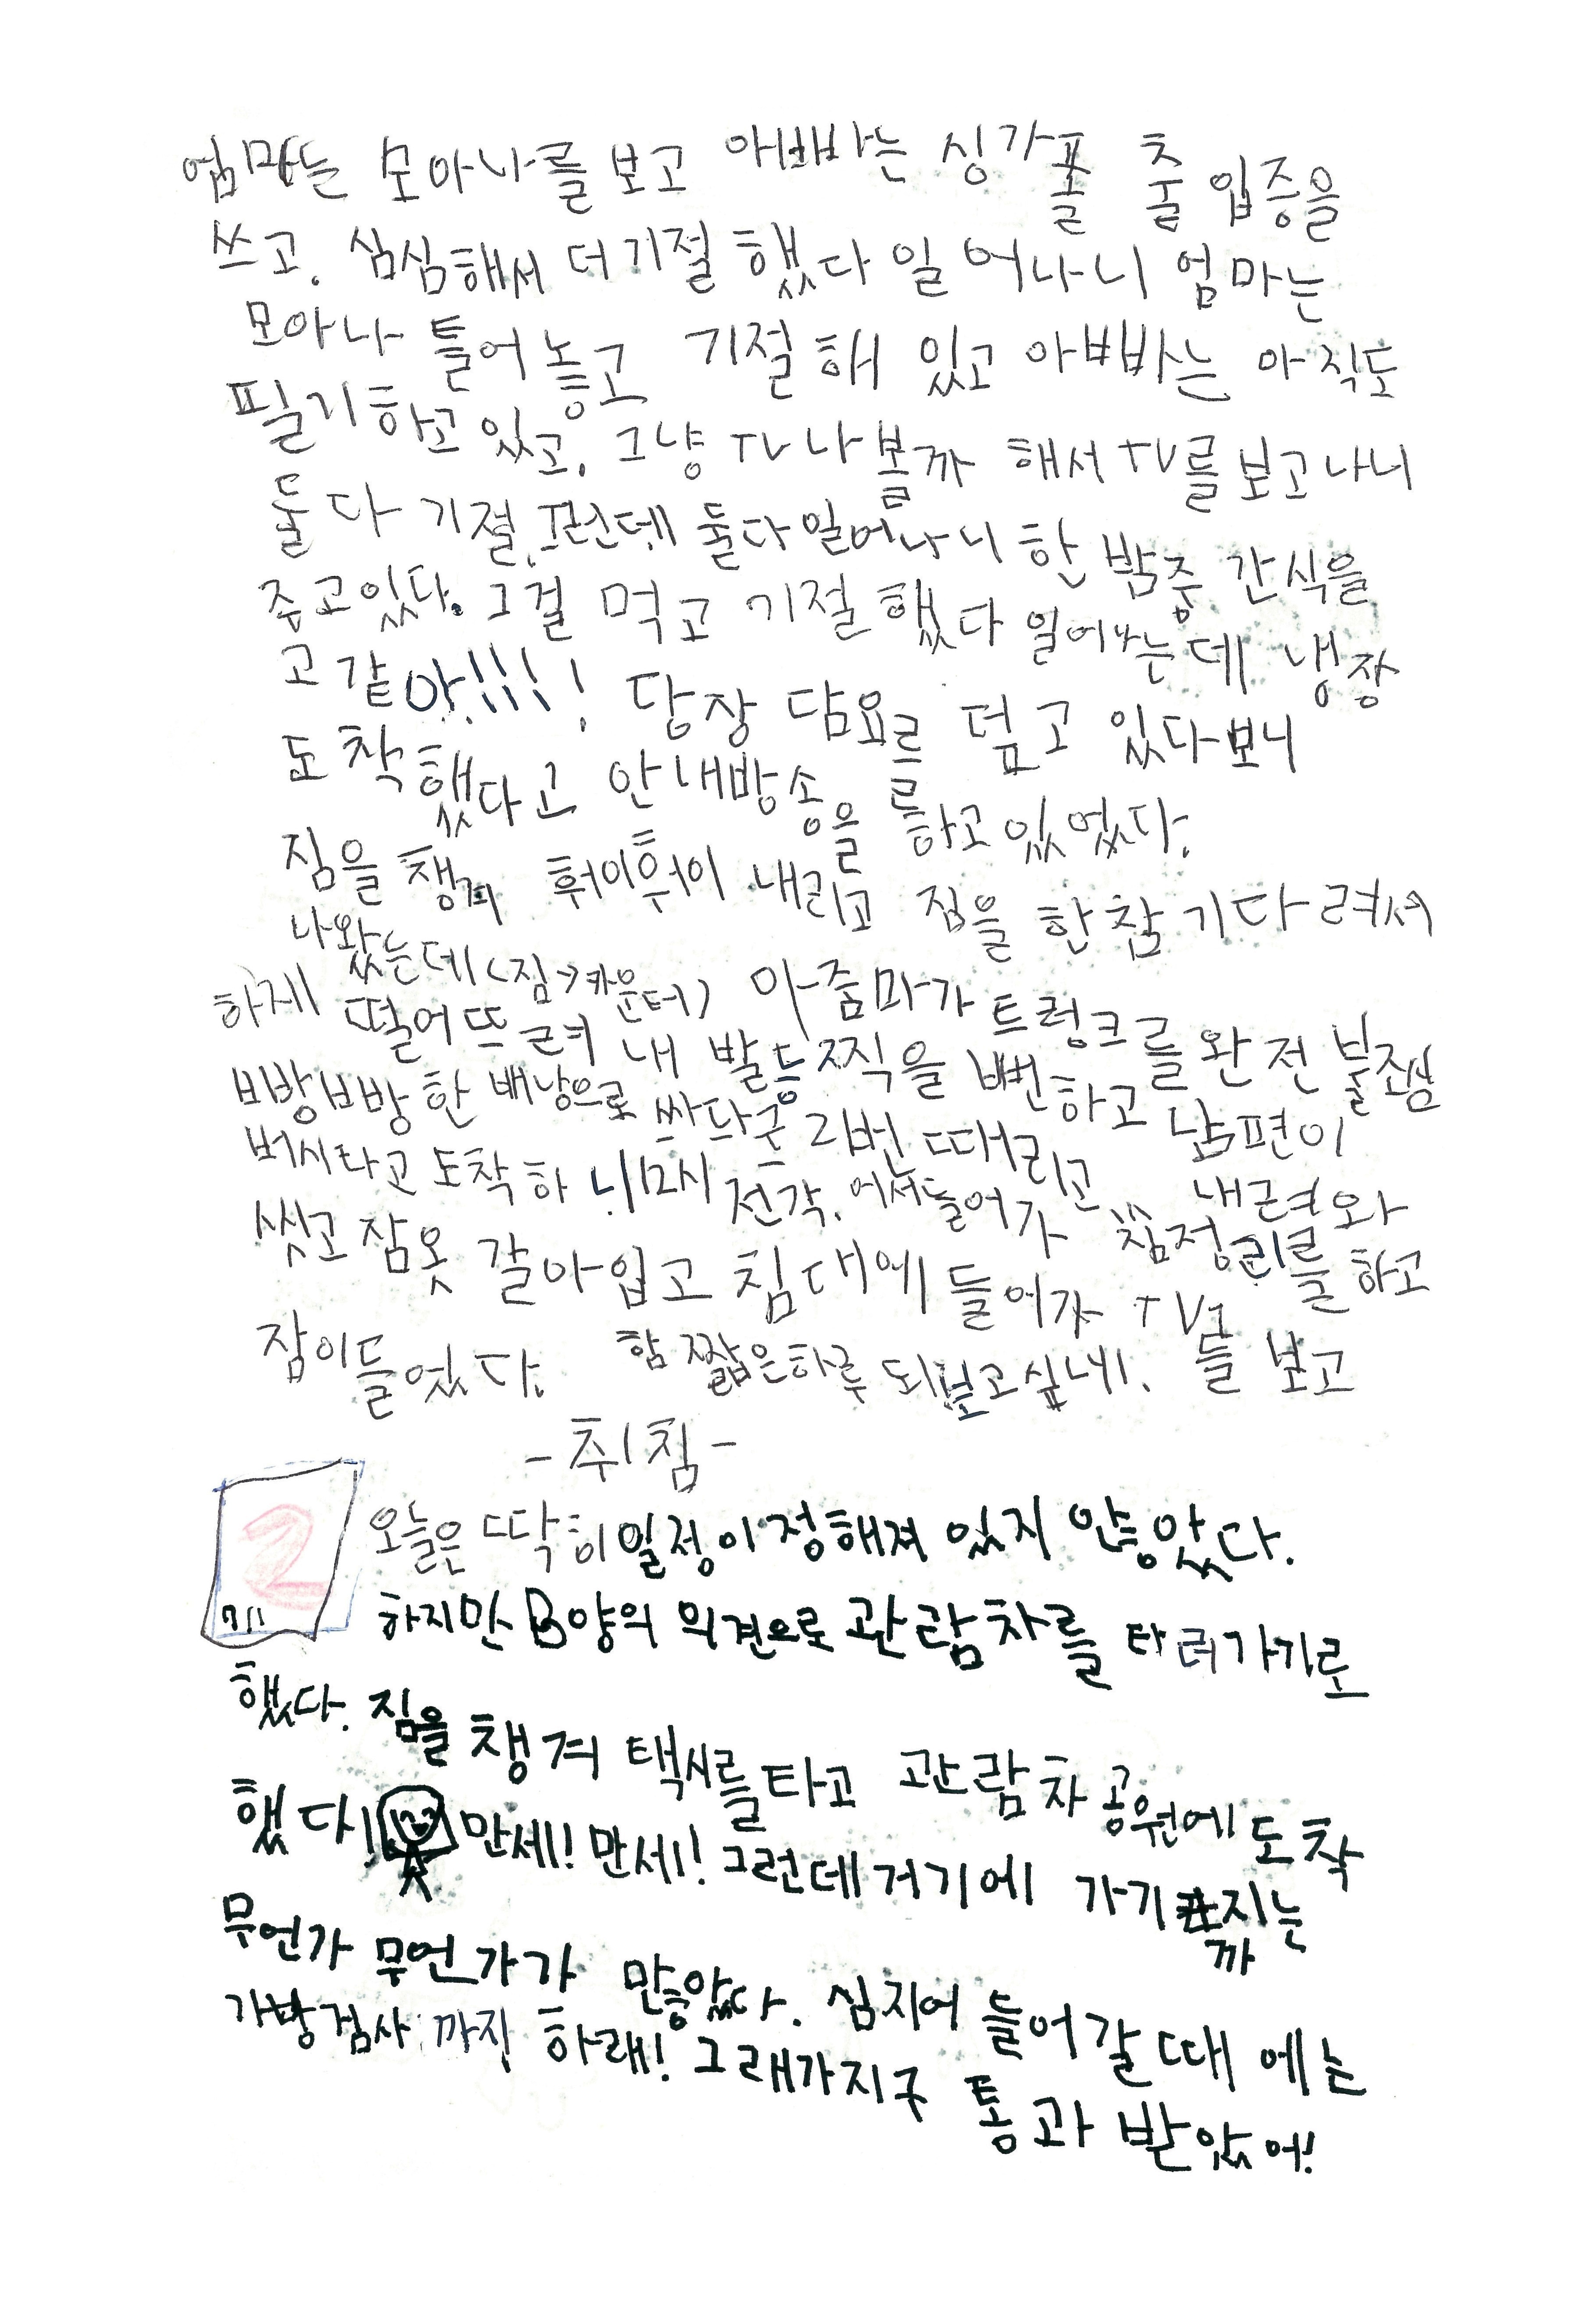 엄마는 모아나를 보고 아빠는 싱가폴 출입증을
쓰고, 심심해서 더 기절했다 일어나니 엄마는
모아나 틀어놓고 기절해 있고 아빠는 아직도
필기하고 있고, 그냥 TV나 봄까 해서 TV를 보고나니
둘 다 기절. 근데 둘다 일어나니 한 밤중 간식을
주고있다. 그걸 먹고 기절했다 일어나는데 냉장
고 같아!!!! 당장 담요르 덮고 있다보니
도착했다고 안내방송을 를 하고 있었다.
짐을 챙겨 훠이훠이 내리고 짐을 한참 기다려서
나왔는데(짐→카운터) 아줌마가 트렁크를 완전 불조심
하게 떨어뜨려 내 발등 찍을 뻔하고 남편이
빵빵한 배낭으로 싸다구 2번 때리고 내려와
버시타고 도착하니 12시 전각. 어서 들어가 짐정리를 하고
씻고 잠옷 갈아입고 침대에 들어가 TV를 보고
잠이 들었다. 참 짧은하루 되보고싶네!.
- 취침 -
2
7/1
오늘은 딱히 일정이 정해져 있지 안핞았다.
하지만 B양의 의견으로 관람차를 타러가기로
했다. 짐을 챙겨 택시를 타고 관람차 공원에 도착
했다! 만세! 만세! 그런데 거기에 가기까지는
무언가 무언가가 많았다. 심지어 들어갈 때에는
가방검사 까지 하래! 그래가지구 통과 받았어!